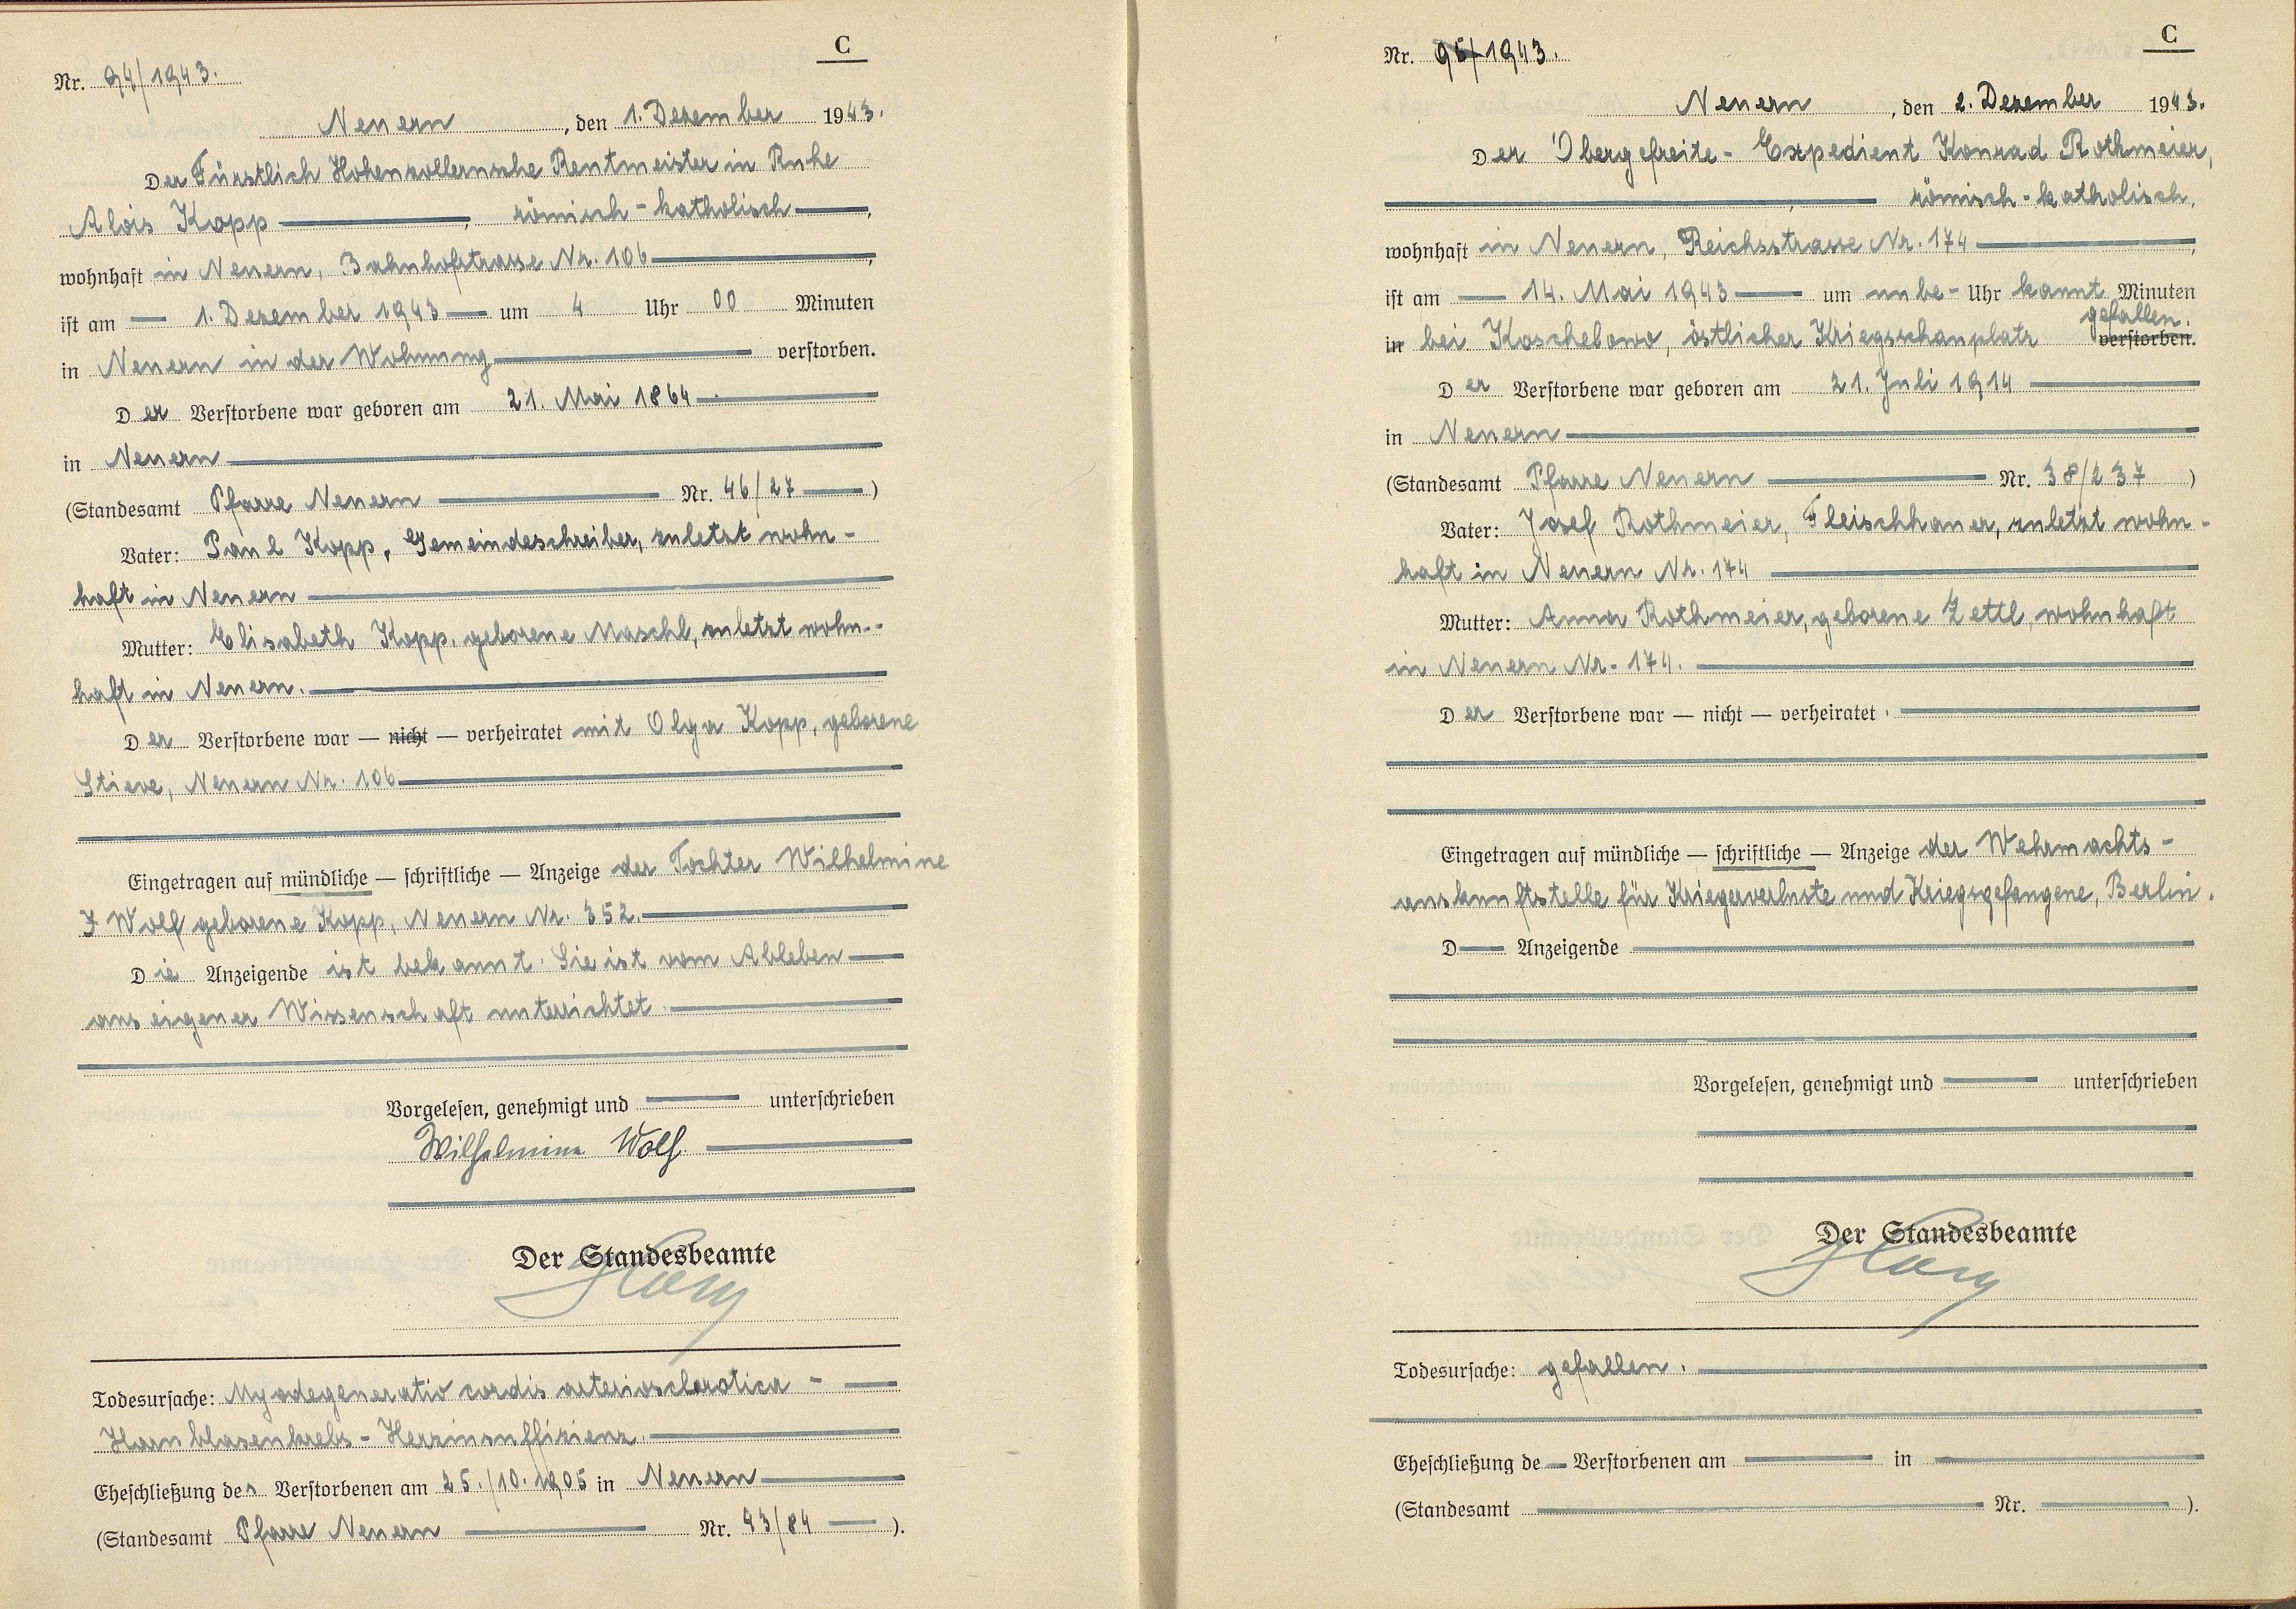 C
Nr. 94/1943.
Neuern, den 1. Dezember 1943.
Der Fürstlich Hohenzollernsche Rentmeister in Ruhe
Alois Kopp, römisch-katholisch,
wohnhaft in Neuern, Bahnhofstrasse Nr. 106,
ist am 1. Dezember 1943 um 4 Uhr 00 Minuten
in Neuern in der Wohnung verstorben.
Der Verstorbene war geboren am 21. Mai 1864
in Neuern
(Standesamt Pfarre Neuern Nr. 46/27)
Vater: Paul Kopp, Gemeindeschreiber, zuletzt wohn-
haft in Neuern
Mutter: Elisabeth Kopp, geborene Maschl, zuletzt wohn-
haft in Neuern.
Der Verstorbene war — nicht — verheiratet mit Olga Kopp, geborene
Stieve, Neuern Nr. 106
Eingetragen auf mündliche — schriftliche — Anzeige der Tochter Wilhelmine
Wolf geborene Kopp, Neuern Nr. 352.
Die Anzeigende ist bekannt. Sie ist vom Ableben
aus eigener Wissenschaft unterrichtet.
Vorgelesen, genehmigt und unterschrieben
Wilhelmine Wolf
Der Standesbeamte
Todesursache: Myodegeneratio cordis arteriosclerotica -
Harnblasenkrebs - Herzinsuffizienz.
Eheschließung des Verstorbenen am 25./10. 1905 in Neuern
(Standesamt Pfarre Neuern Nr. 43/84).
C
Nr. 95/1943.
Neuern, den 2. Dezember 1943.
Der Obergefreite - Expedient Konrad Rothmeier,
römisch-katholisch,
wohnhaft in Neuern, Reichsstrasse Nr. 174,
ist am 14. Mai 1943 um unbe- Uhr kannt Minuten
gefallen.
in bei Koschelowo, östlicher Kriegsschauplatz verstorben.
Der Verstorbene war geboren am 21. Juli 1914
in Neuern
(Standesamt Pfarre Neuern Nr. 38/237)
Vater: Josef Rothmeier, Fleischhauer, zuletzt wohn-
haft in Neuern Nr. 174
Mutter: Anna Rothmeier, geborene Zettl, wohnhaft
in Neuern Nr. 174.
Der Verstorbene war — nicht — verheiratet.
Eingetragen auf mündliche — schriftliche — Anzeige der Wehrmachts-
auskunftstelle für Kriegerverluste und Kriegsgefangene, Berlin.
D Anzeigende
Vorgelesen, genehmigt und unterschrieben
Der Standesbeamte
Todesursache: gefallen.
Eheschließung de Verstorbenen am in
(Standesamt Nr. ).